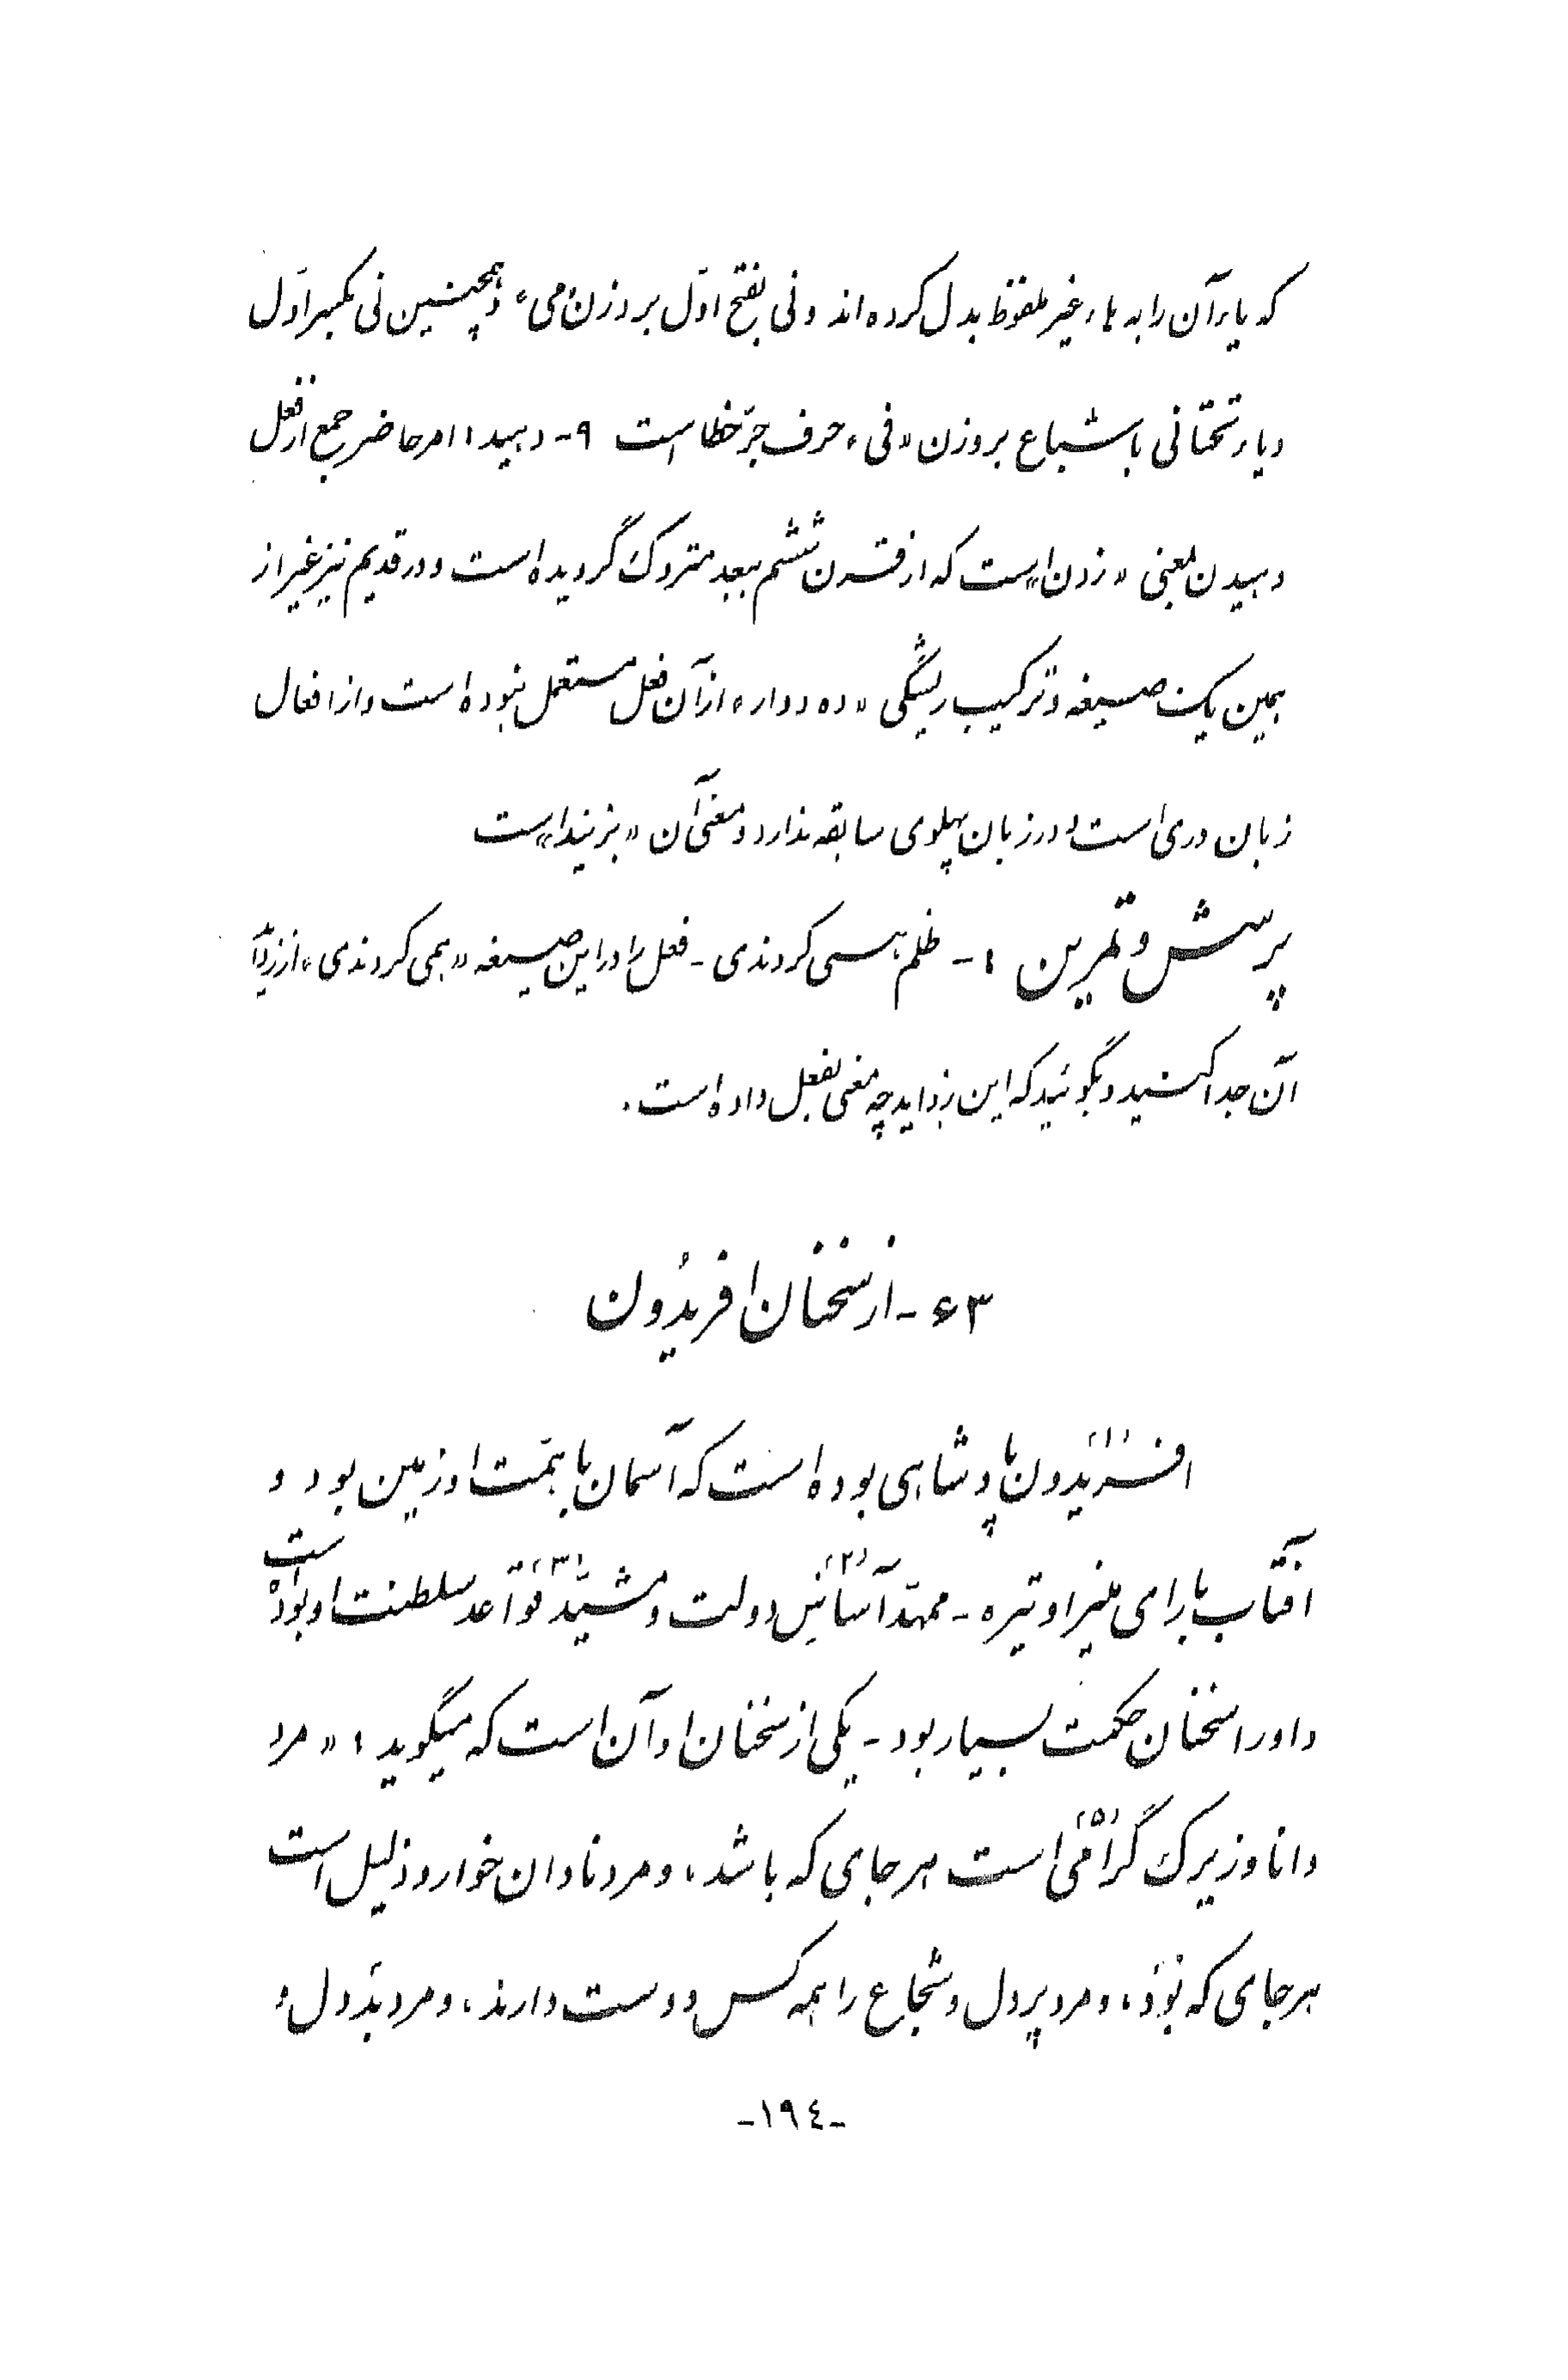 که یاء آن را به هاء غیر ملفوظ بدل کرده‌اند و نی بفتح اوّل بر وزن «می» و همچنین نی بکسر اوّل
و یاء تحتانی باشباع بر وزن «فی» حرف جرّ خطا است ۹- دهید: امر حاضر جمع از فعل
دهیدن بمعنی «زدن» است که از قرن ششم ببعد متروک گردیده است و در قدیم نیز غیر از
همین یک صیغه و ترکیب ریشگی «ده و دار» از آن فعل مستعمل نبوده است و از افعال
زبان دری است و در زبان پهلوی سابقه ندارد و معنی آن «بزنید» است
پرسش و تمرین ۱- ظلم همی کردندی - فعل را در این صیغه «همی کردندی» از زواید
آن جدا کنید و بگوئید که این زواید چه معنی بفعل داده است.
۶۳- از سخنان افریدُون
افریدون (۱) پادشاهی بوده است که آسمان با همّت او زمین بود و
آفتاب با رای منیر او تیره - ممهّد آسایش (۲) دولت و مشیّد (۳) قواعد سلطنت او بوده است
و او را سخنان حکمت بسیار بود - یکی از سخنان او آن است که میگوید: «مرد
دانا و زیرک گرامی (۵) است هر جای که باشد، و مرد نادان خوار و ذلیل است
هر جای که بُوَد، و مرد پر دل و شجاع را همه کس دوست دارند، و مرد بَد دل و
-۱۹٤-